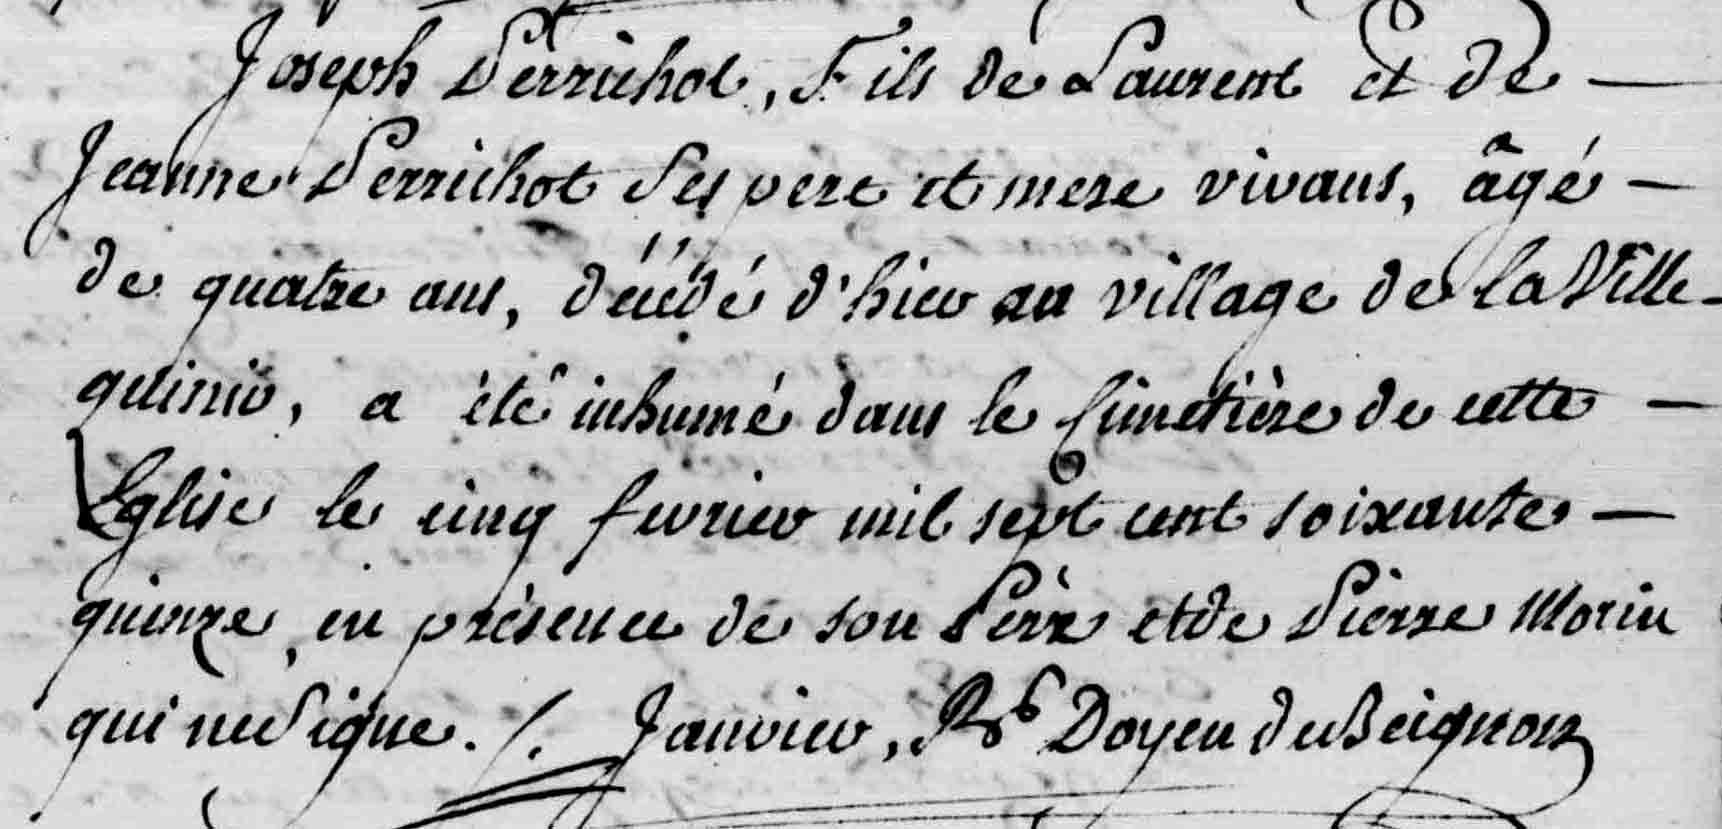 Joseph Perrichot, Fils de Laurent et de —
Jeanne Perrichot Ses pere et mere vivans, âgé —
de quatre ans, décédé d'hier au village de la Ville-
quinio, a été inhumé dans le Cimetière de cette —
Eglise le cinq fevrier mil sept cent soixante —
quinze, en présence de son Père et de Pierre Morin
qui ne Signe. /. Janvier, Rr Doyen de Beignon